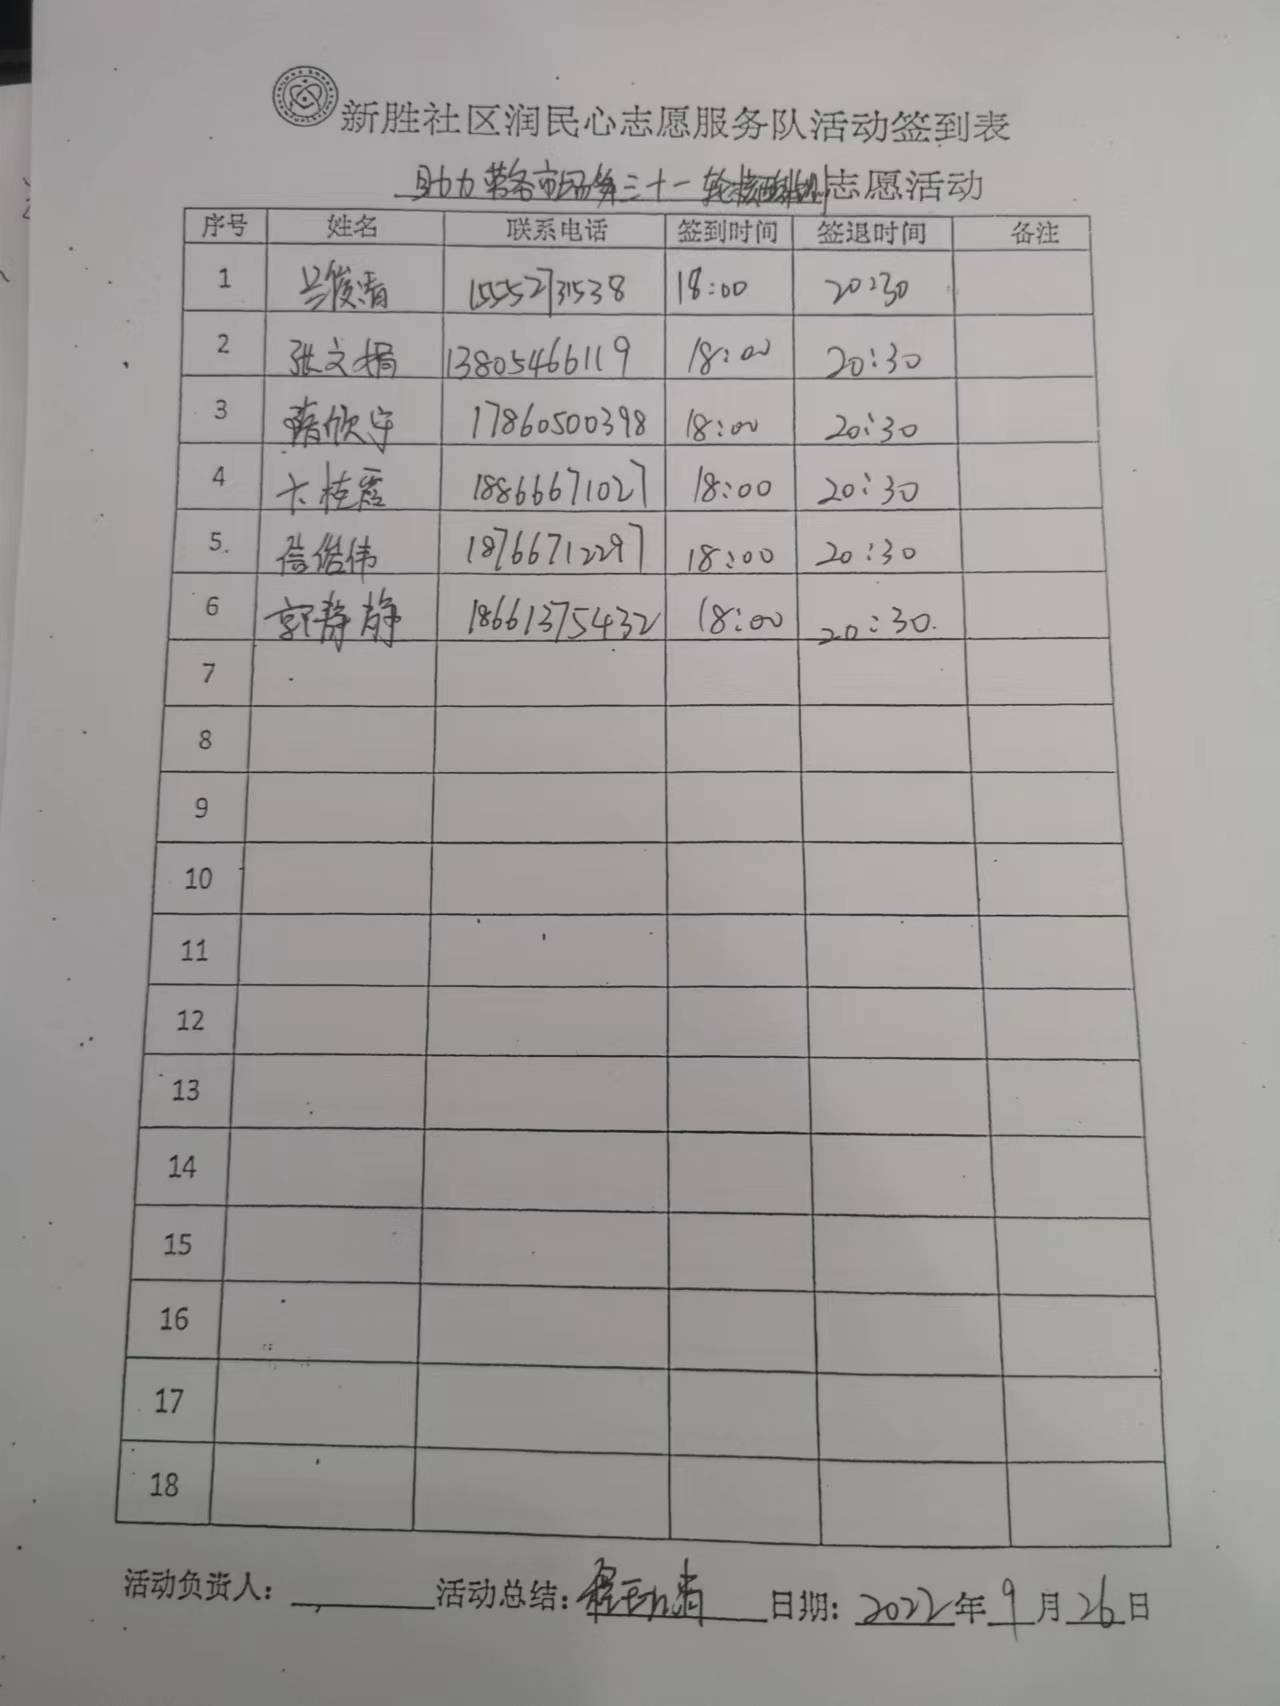 新胜社区润民心志愿服务队活动签到表
助力 市 第三十一轮核酸 志愿活动
序号 姓名 联系电话 签到时间 签退时间 备注
1 兰俊清 15552731538 18:00 20:30
2 张文娟 13805466119 18:00 20:30
3 隋欣宇 17860500398 18:00 20:30
4 卞桂霞 18866671027 18:00 20:30
5. 信俊伟 18766712297 18:00 20:30
6 郭静静 18661375432 18:00 20:30.
7
8
9
10
11
12
13
14
15
16
17
18
活动负责人: 活动总结: 日期: 2022年9月26日